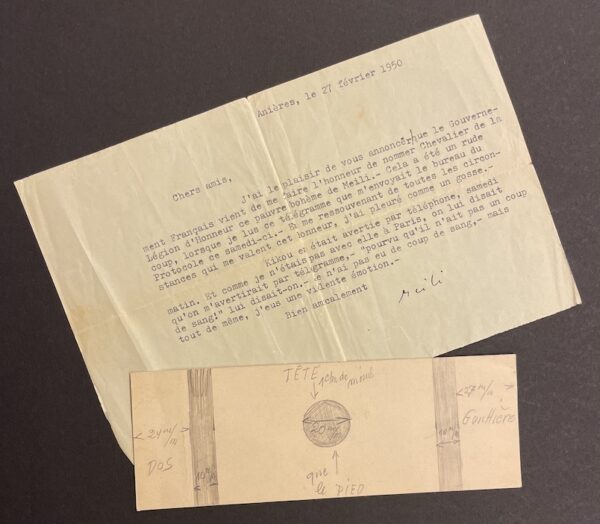 Anières, le 27 février 1950
Chers amis,
J'ai le plaisir de vous annoncer que le Gouverne-
ment Français vient de me faire l'honneur de nommer Chevalier de la
Légion d'Honneur ce pauvre bohème de Meili.- Cela a été un rude
coup, lorsque je lus ce télégramme que m'envoyait le bureau du
Protocole ce samedi-ci.- En me ressouvenant de toutes les circon-
stances qui me valent cet honneur, j'ai pleuré comme un gosse.-
Kikou en était avertie par téléphone, samedi
matin. Et comme je n'étais pas avec elle à Paris, on lui disait
qu'on m'avertirait par télégramme,- "pourvu qu'il n'ait pas un coup
de sang!" lui disait-on.- Je n'ai pas eu de coup de sang,- mais
tout de même, j'eus une vidente émotion.-
Bien amcalement
Meili
TÊTE
DOS
20 m/m
Gouttière
que
le PIED